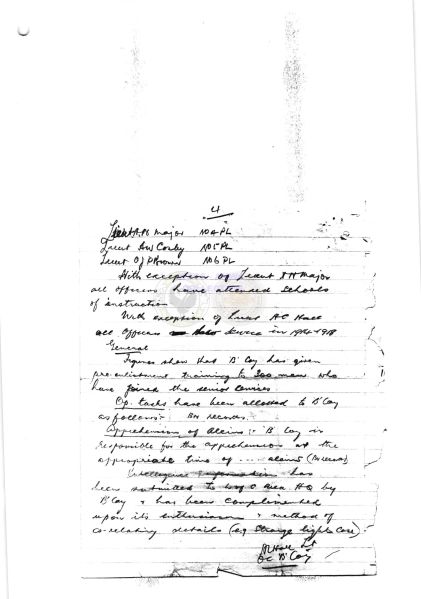 4
Lieut Major NO4PL
Lieut AW Corby NO5PL
Lieut O J P Brown NO6PL
With exception of Lieut Major
all officers have attended schools
of instruction
With exception of Lieut A C Hall
all officers service in 1914-1918
General
Figures show that B' Coy has given
pre-enlistment training to 300 men who
have joined the senior services.
Op. tasks have been allotted to B'Coy
as follows:- BN records.
Apprehension of Aliens :- 'B' Coy is
responsible for the apprehension at the
appropriate time of .... aliens (BN records)
Intelligence has
been submitted to Area HQ by
B'Coy & has been complimented
upon its enthusiasm & method of
co-relating details (eg Strange lights Case).
Hall Lt
OC 'B' Coy